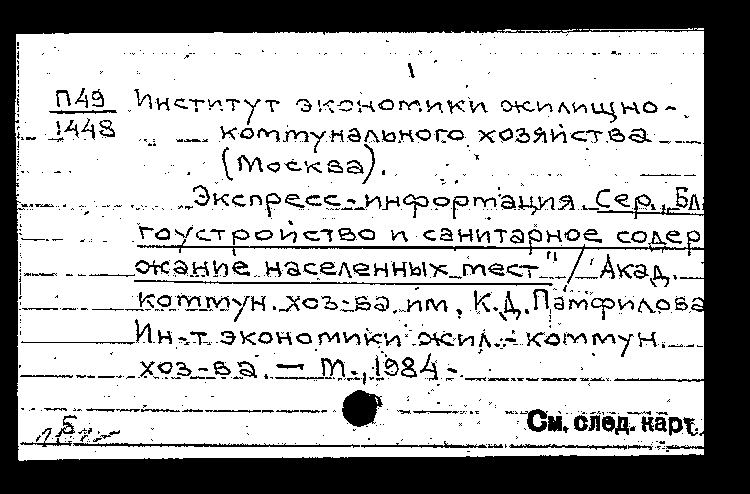 П49 Институт экономики жилищно-
1448 коммунального хозяйства
(Москва).
Экспресс-информация. Сер., Бла
гоустройство и санитарное содер
жание населенных мест" / Акад.
коммун. хоз-ва им. К.Д.Памфилова
Ин-т экономики жил.-коммун.
хоз-ва. — М., 1984 -
Б
См. след. карт.